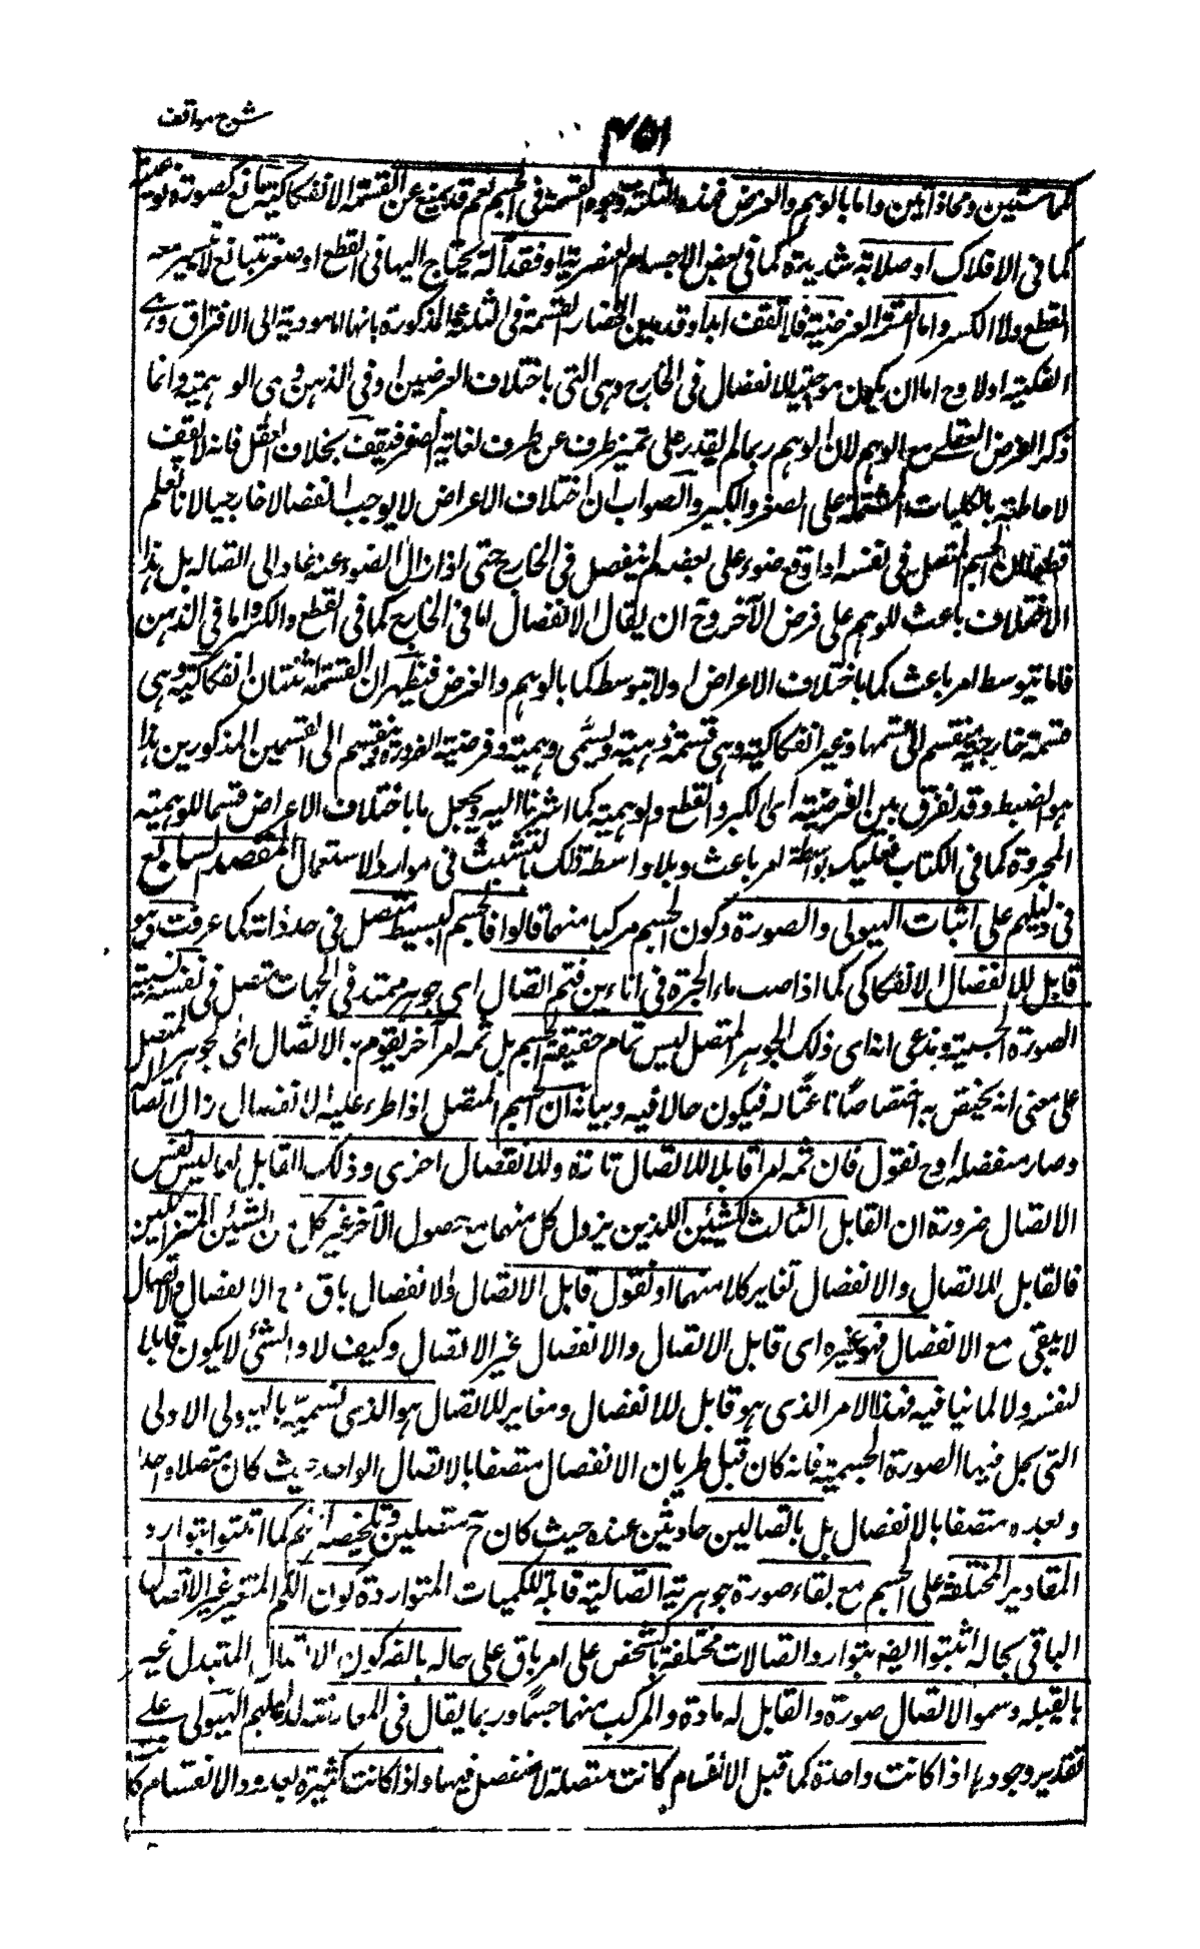 شرح مواقف
٤٥١
مماستين ومحاذاتين واما بالوهم والفرض فهذه الثلثة وجوه القسمة فى الجسم نعم قد يمنع عن القسمة الانفكاكية مانع كصورة نوعية
كما فى الافلاك او صلابة شديدة كما فى بعض الاجسام العنصرية او فقد آلة يحتاج اليها فى القطع او صغر بتبالغ لا يتميز معه
القطع ولا الكسر واما القسمة الفرضية فلا تقف ابدا وقد يبين انحصار القسمة فى الثلثة المذكورة بانها اما مودية الى الافتراق وهى
الفكية اولا وح اما ان يكون موجبة للانفصال فى الخارج وهى التى باختلاف العرضين او فى الذهن وهى الوهمية وانما
ذكر الفرض العقلى مع الوهم لان الوهم ربما لم يقدر على تميز طرف عن طرف لغاية الصغر فيقف بخلاف العقل فانه لا يقف
لاحاطته بالكليات المشتملة على الصغر والكبير والصواب ان اختلاف الاعراض لا يوجب انفصالا خارجيا لانا نعلم
قطعا ان الجسم المتصل فى نفسه اذا وقع ضوء على بعضه لم ينفصل فى الخارج حتى اذا زال الضوء عنه عاد الى اتصاله بل هذا
الاختلاف باعث للوهم على فرض الآخر وح ان يقال الانفصال اما فى الخارج كما فى القطع والكسر واما فى الذهن
فاما بتوسط امر باعث كما باختلاف الاعراض او لا بتوسط كما بالوهم والفرض فيظهر ان القسمة اثنتان انفكاكية وهى
قسمة خارجية منقسم الى قسميها وغير انفكاكية وهى قسمة ذهنية وتسمى وهمية وفرضية الضرورة وينقسم الى القسمين المذكورين هذا
هو الضبط وقد نفرق بين الفرضية اى الكسر والقطع والوهمية كما اشرنا اليه ويجعل ما باختلاف الاعراض قسما للوهمية
المجردة كما فى الكتاب فعليك بواسطة امر باعث وبلا واسطة ذلك التشبث فى موارد الاستعمال المقصد السابع
فى دليلهم على اثبات الهيولى والصورة وكون الجسم مركبا منهما قالوا فالجسم البسيط متصل فى حد ذاته كما عرفت وهو
قابل للانفصال الانفكاكى كما اذا صب ماء الجرة فى اناءين فثم اتصال اى جوهر ممتد فى الجهات متصل فى نفسه نسميه
الصورة الجسمية وندعى انه اى ذلك الجوهر المتصل ليس تمام حقيقة الجسم بل ثمه امر آخر يقوم به الاتصال اى الجوهر المتصل
على معنى انه يختص به اختصاصا ناعتا له فيكون حالا فيه وبيانه ان الجسم المتصل اذا طرء عليه الانفصال زال الاتصال
وصار منفصلا وح نقول فان ثمه امرا قابلا للاتصال تارة وللانفصال اخرى وذلك القابل لهما ليس نفس
الاتصال ضرورة ان القابل الثالث للشيئين اللذين يزول كل منهما مع حصول الآخر غير كل من الشيئين المتزائلين
فالقابل للاتصال والانفصال تغاير كلا منهما او نقول قابل الاتصال والانفصال باق مع الانفصال والاتصال
لا يبقى مع الانفصال فهو غيره اى قابل الاتصال والانفصال غير الاتصال وكيف لا والشئ لا يكون قابلا
لنفسه ولا لما ينافيه فهذا الامر الذى هو قابل للانفصال ومغاير للاتصال هو الذى نسميه بالهيولى الاولى
التى يحل فيها الصورة الجسمية فانه كان قبل طريان الانفصال متصفا بالاتصال الواحد حيث كان متصلا واحدا
وبعده متصفا بالانفصال بل باتصالين حادثين عنده حيث كان ح متصلين وتلخيصه انهم كما اثبتوا بتوارد
المقادير المختلفة على الجسم مع بقاء صورة جوهرية اتصالية قابلة للكميات المتواردة كون الكم المتغير غير الاتصال
الباقى بحاله اثبتوا ايضه بتوارد اتصالات مختلفة بالشخص على امر باق على حاله بالضه كون الاتصال المتبدل غير
بالقبله وسموا الاتصال صورة والقابل له مادة والمركب منهما جسما وربما يقال فى المعارضة لدليلهم الهيولى على
تقدير وجودها اذا كانت واحدة كما قبل الانقسام كانت متصلة لا منفصل فيها واذا كانت كثيرة بعده والانقسام كا